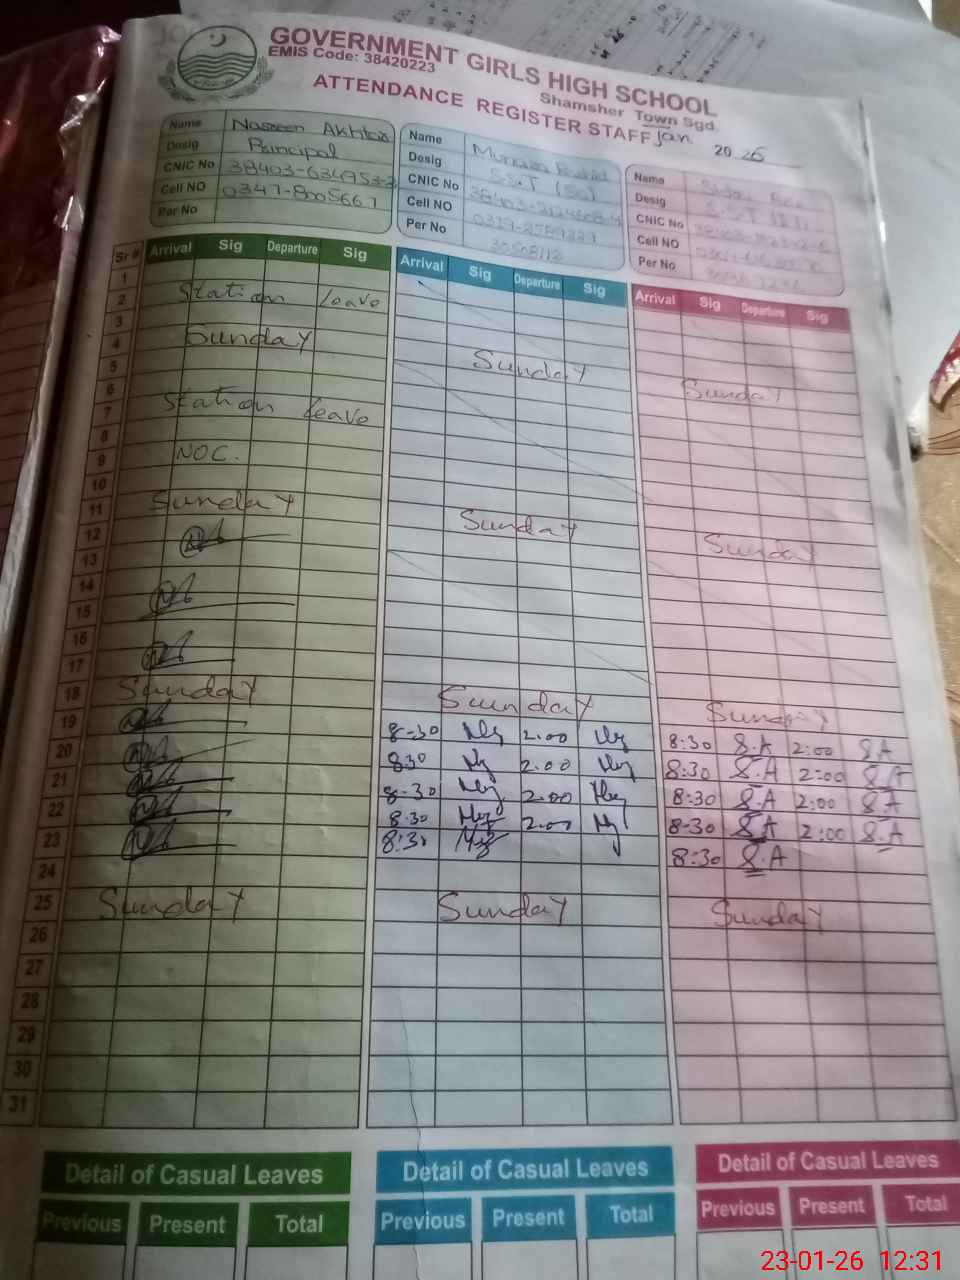 GOVERNMENT GIRLS HIGH SCHOOL
EMIS Code: 38420223
Shamsher Town Sgd.
ATTENDANCE REGISTER STAFF Jan 2026
Name Nasreen Akhtar
Desig Principal
CNIC No
Cell NO 0347-8005667
Per No
Name
Desig S.S.T (Sc)
CNIC No
Cell NO
Per No
Name
Desig
CNIC No
Cell NO
Per No
Sr # Arrival Sig Departure Sig Arrival Sig Departure Sig Arrival Sig Departure Sig
1
2 Station Leave
3
4 Sunday Sunday Sunday
5
6
7 Station leave
8
9 NOC.
10
11 Sunday Sunday Sunday
12
13
14
15
16
17
18 Sunday Sunday Sunday
19 8-30 2.00 8:30 S.A 2:00 S.A
20 830 2.00 8:30 S.A 2:00 S.A
21 8-30 2.00 8:30 S.A 2:00 S.A
22 8.30 2.00 8-30 S.A 2:00 S.A
23 8:30 8:30 S.A
24
25 Sunday Sunday Sunday
26
27
28
29
30
31
Detail of Casual Leaves Detail of Casual Leaves Detail of Casual Leaves
Previous Present Total Previous Present Total Previous Present Total
23-01-26 12:31